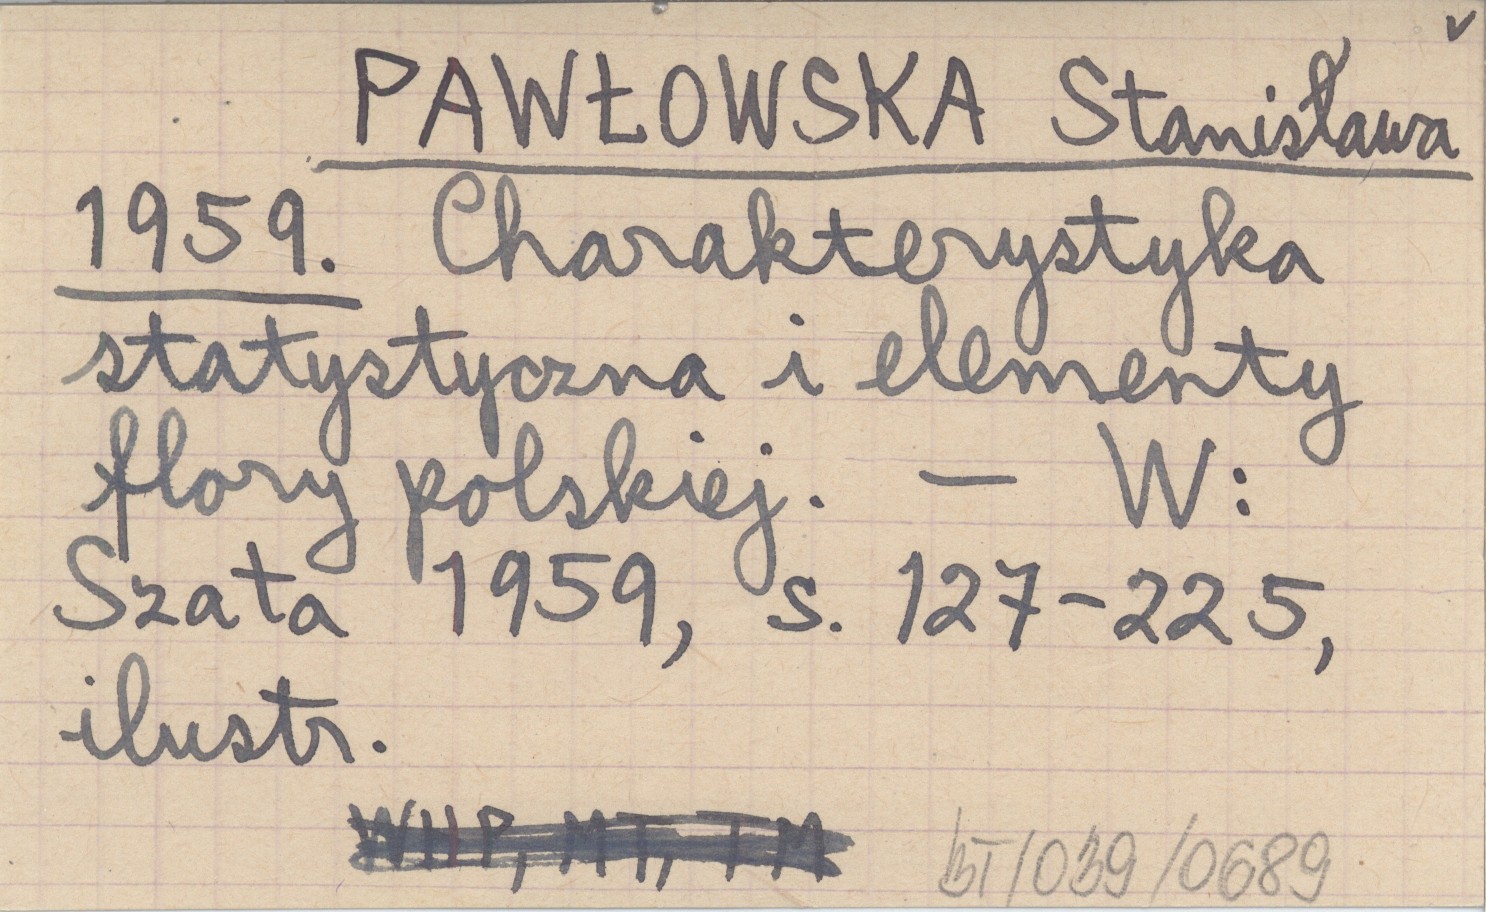 PAWŁOWSKA Stanisława
1959. Charakterystyka
statystyczna i elementy
flory polskiej. — W:
Szata 1959, s. 127-225,
ilustr.
BT/039/0689